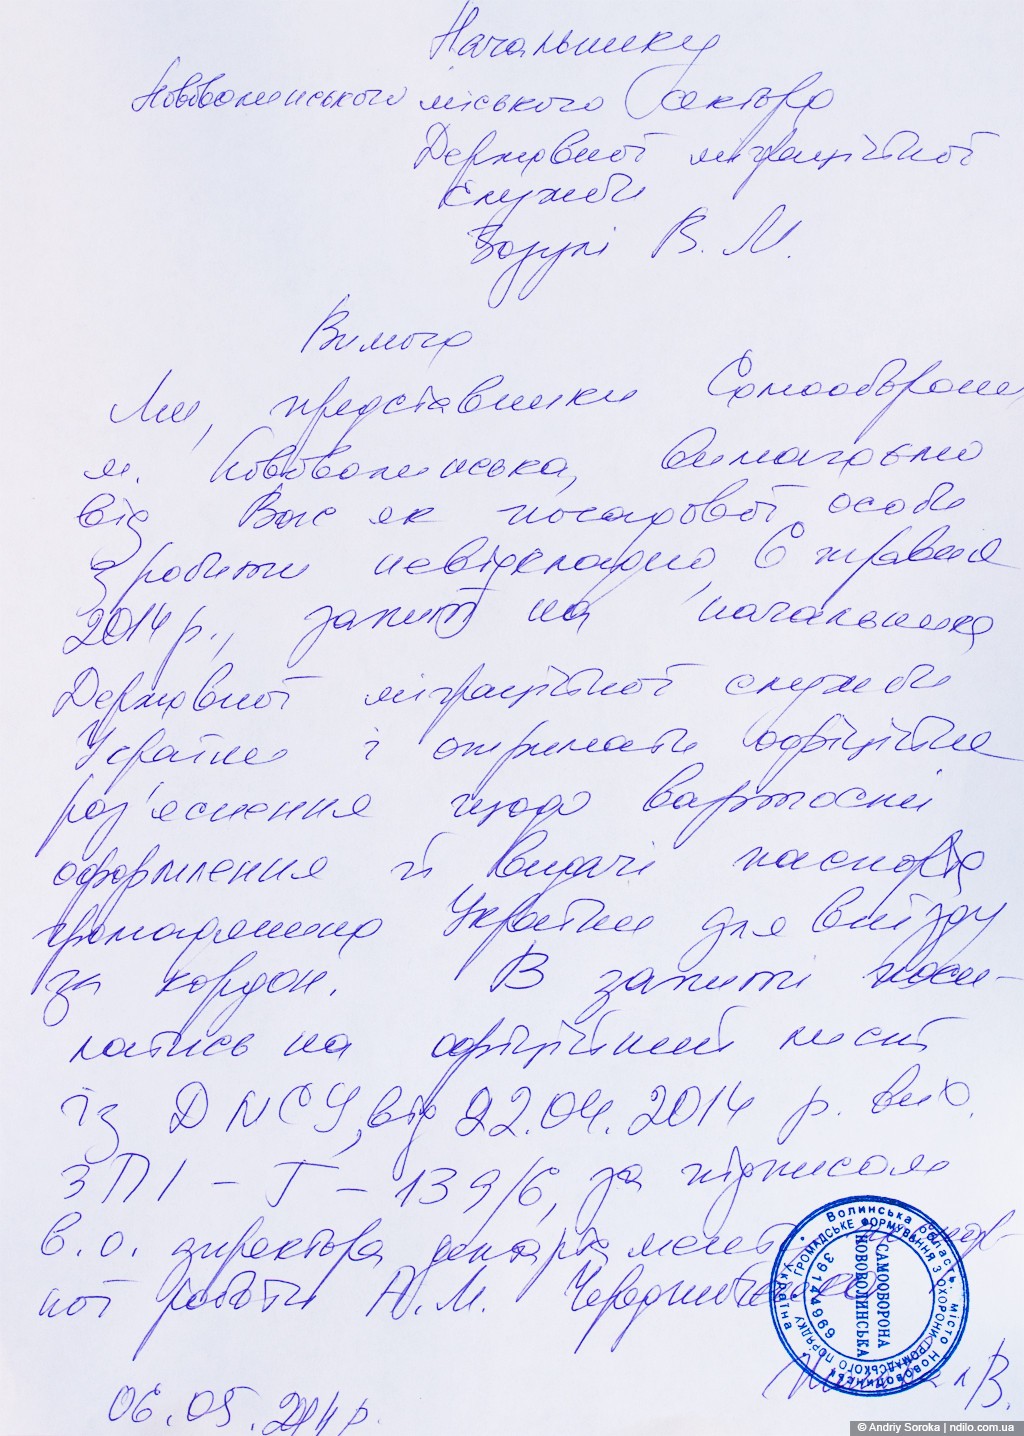 Начальнику
Нововолинського міського сектора
Державної міграційної
служби
Зозулі В. М.
Вимога
Ми, представники Самооборони
м. Нововолинська, вимагаємо
від Вас як посадової особи
зробити невідкладно, 6 травня
2014 р., запит на начальника
Державної міграційної служби
України і отримати офіційне
роз'яснення щодо вартості
оформлення й видачі паспорта
громадянина України для виїзду
за кордон. В запиті поси-
латись на офіційний лист
із ДМСУ, від 22.04.2014 р. вих.
ЗПІ - Т - 139/6, за підписом
в. о. директора департаменту
ної роботи А. М. Чередниченко
06.05.2014 р.
В.
Україна * Волинська область, місто Нововолинськ
ГРОМАДСЬКЕ ФОРМУВАННЯ З ОХОРОНИ ГРОМАДСЬКОГО ПОРЯДКУ
САМООБОРОНА
НОВОВОЛИНСЬКА
© Andriy Soroka | ndilo.com.ua